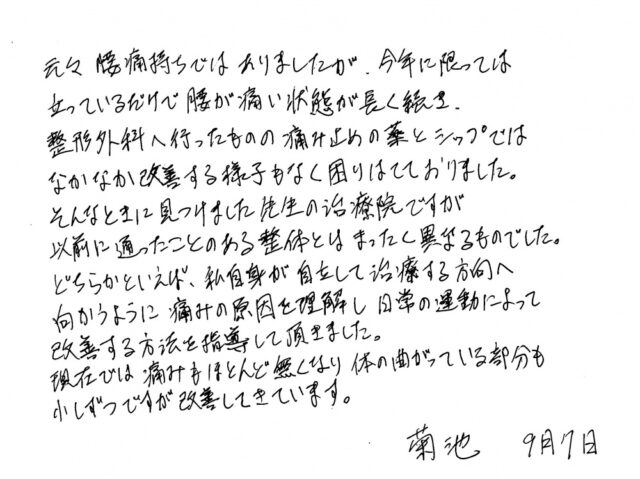 元々 腰痛持ちでは ありましたが、今年に限っては
立っているだけで 腰が痛い状態が長く続き、
整形外科へ行ったものの 痛み止めの薬とシップでは
なかなか改善する様子もなく困りはてておりました。
そんなときに見つけました先生の治療院ですが
以前に通ったことのある整体とは まったく異なるものでした。
どちらかといえば、私自身が自立して治療する方向へ
向かうように 痛みの原因を理解し 日常の運動によって
改善する方法を指導して頂きました。
現在では 痛みもほとんど無くなり 体の曲がっている部分も
少しずつですが改善してきています。
菊池 9月7日